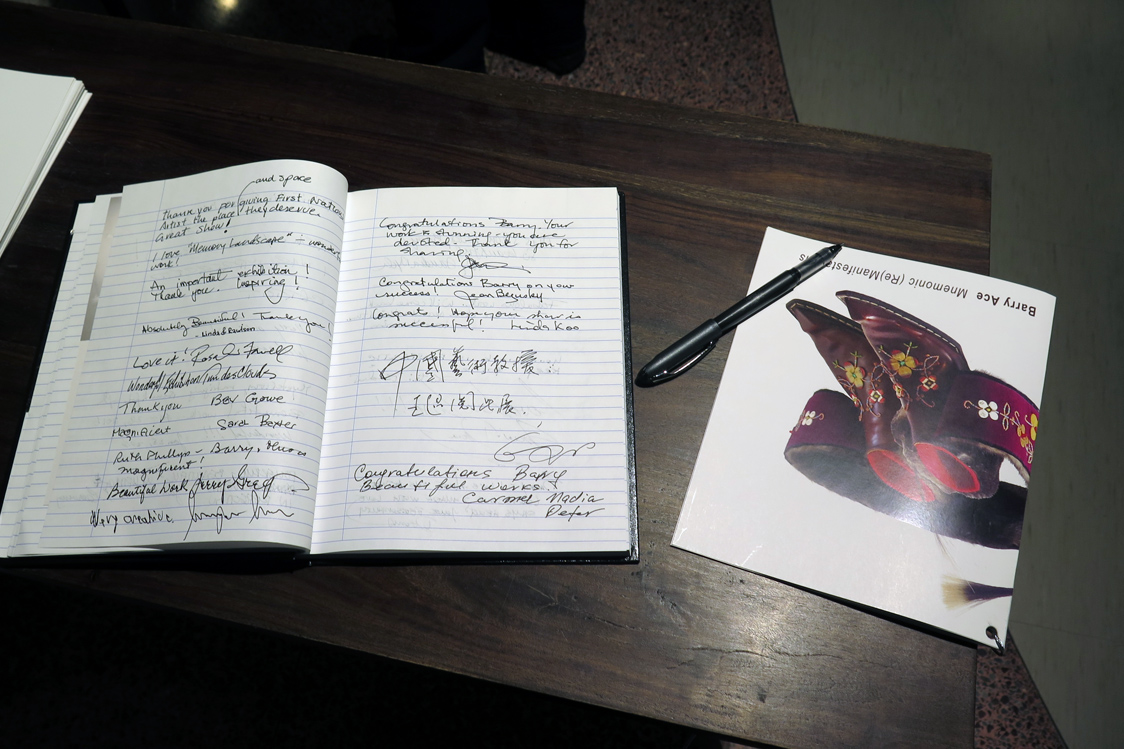 and space
Thank you for giving First Nations
Artist the place they deserve.
Great Show!
I love "Memory Landscape" - wonderful
work!
An important exhibition!
Thank you. Inspiring!
Absolutely Beautiful! Thank you!
Love it!
Thank you Bev Gowe
Magnificent Sara Baxter
Ruth Phillips - Barry,
magnificent!
Beautiful Work
Very creative.
Congratulations Barry. Your
work is stunning - you are
devoted. Thank you for
sharing.
Congratulations Barry on your
success! Jean
Congrats! Hope your show is
successful! Linda Koo
中國藝術教援
Congratulations Barry
Beautiful works
Caromel Nadia
Peter
Barry Ace Mnemonic (Re)Manifestations